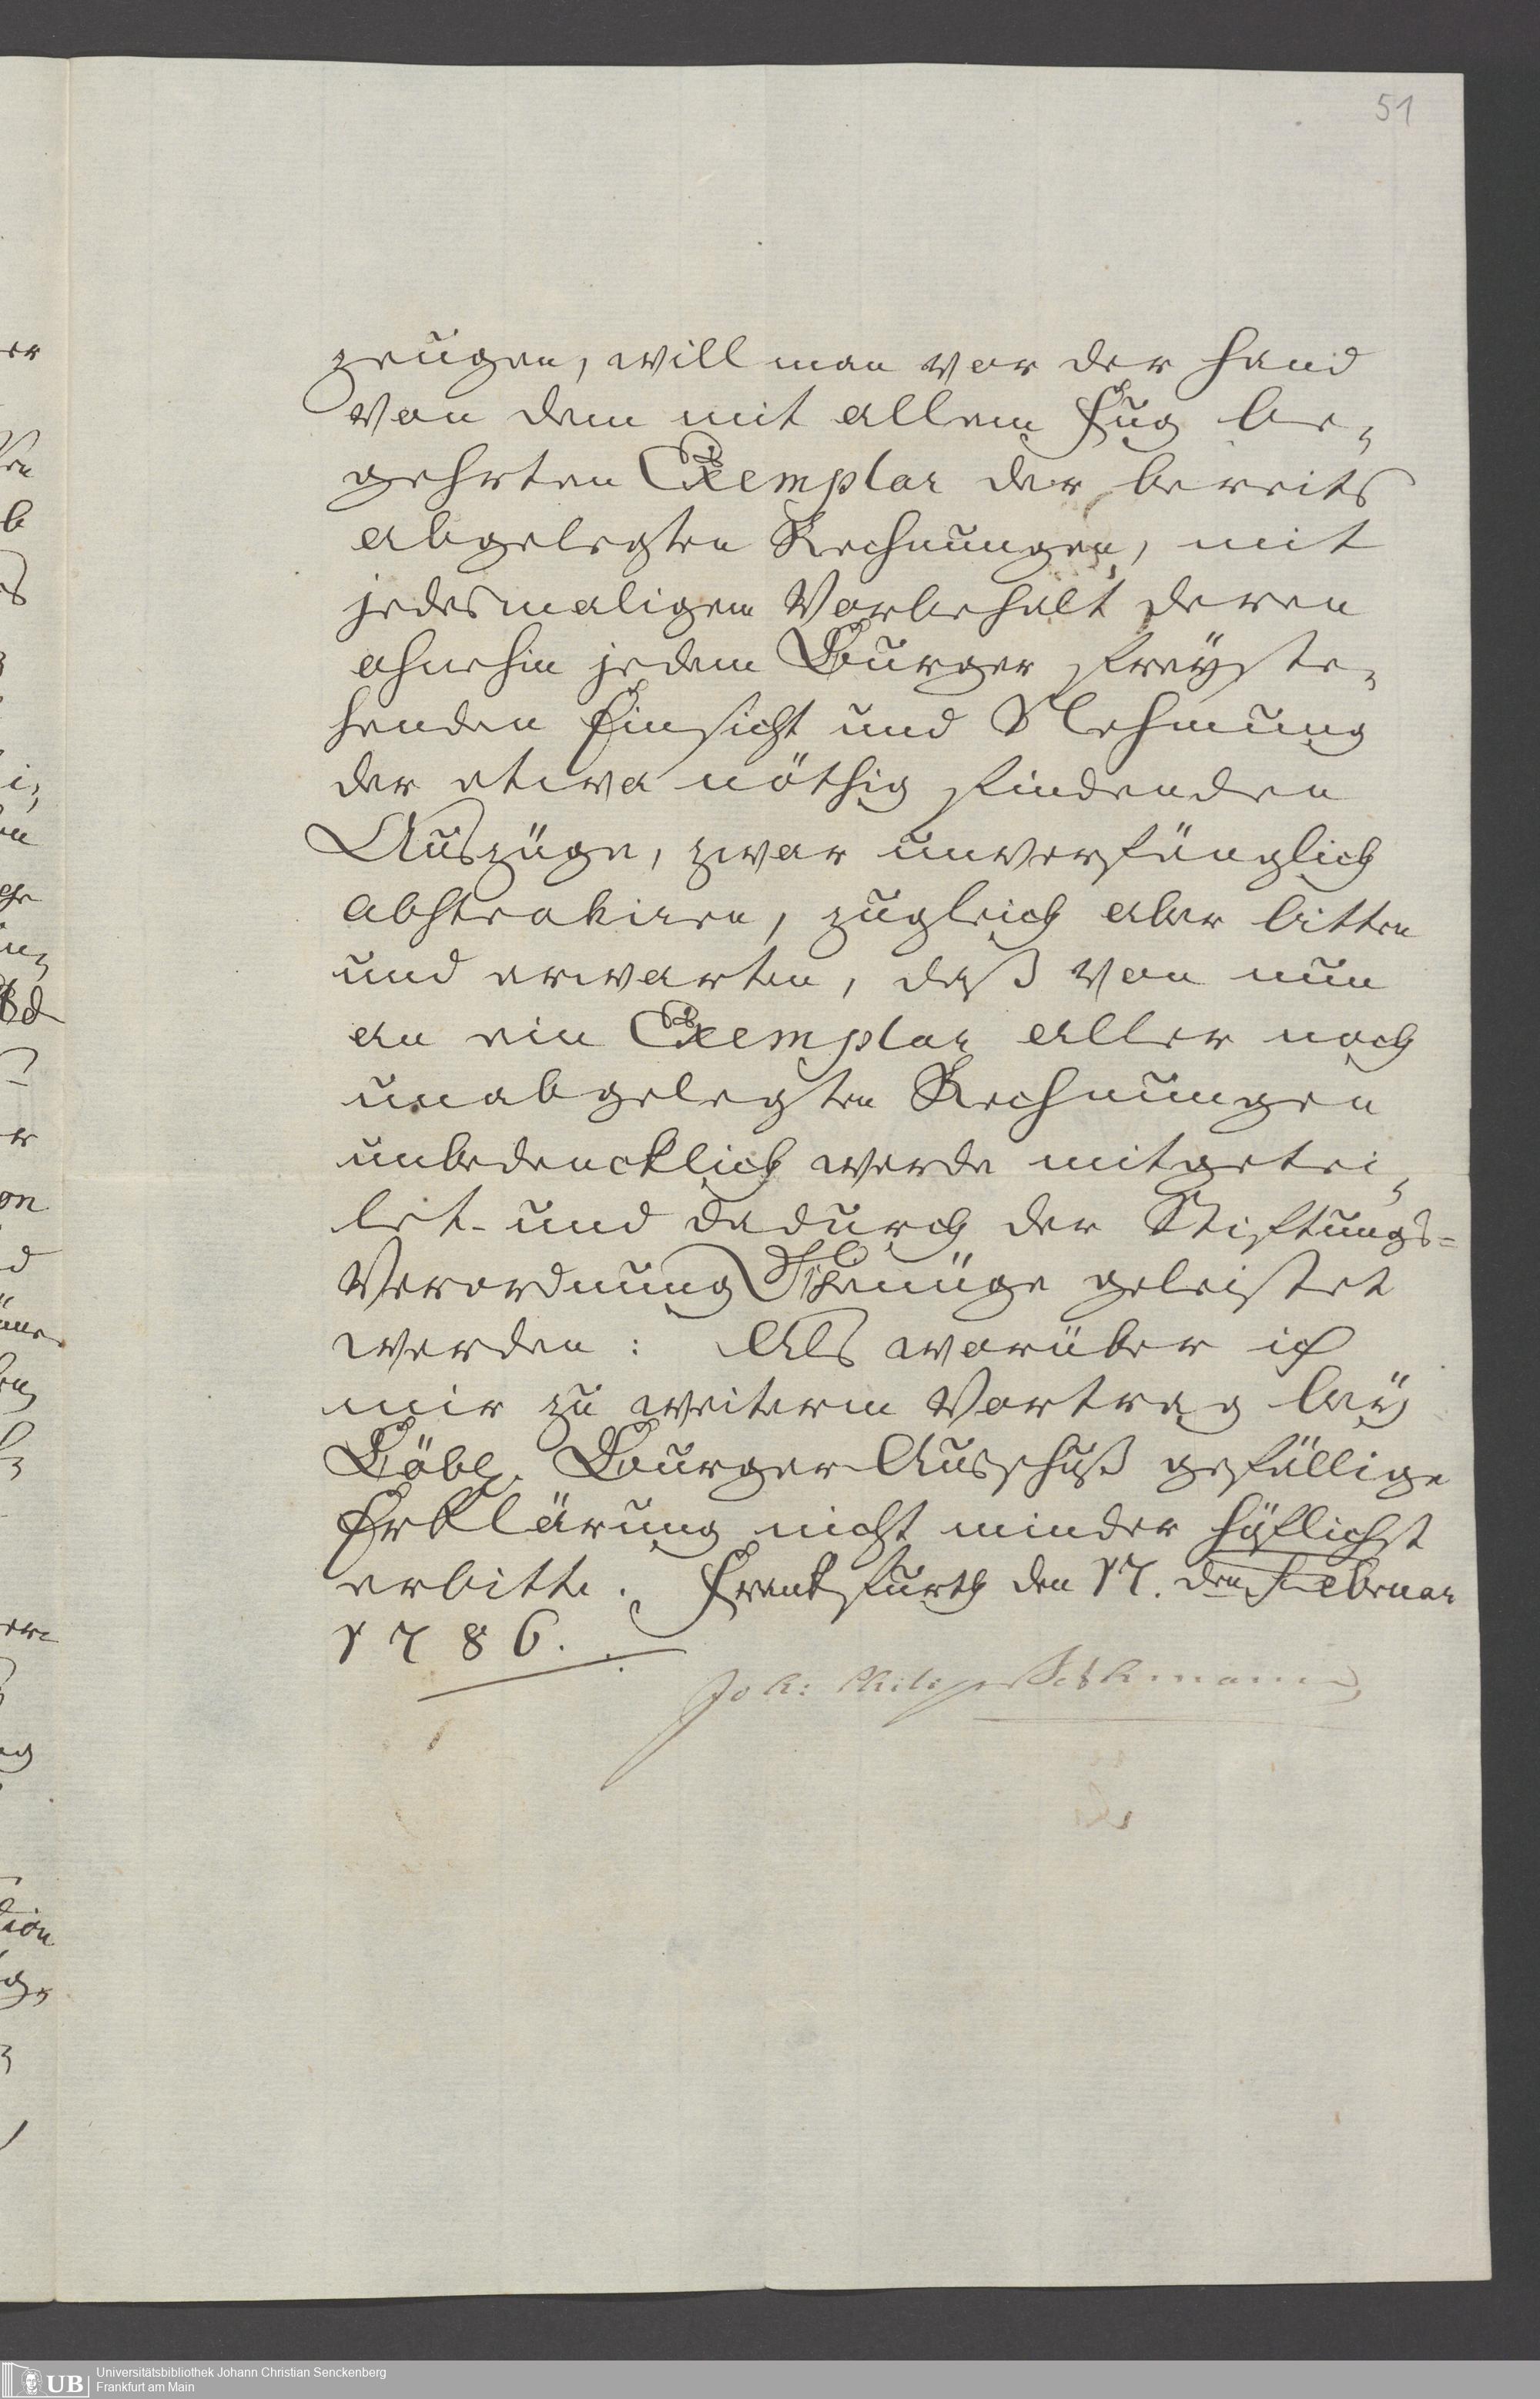 51
zeugen, will man vor der Hand
von dem mit allem Fug be-
gehrten Exemplar der bereits
abgelegten Rechnungen, mit
jedesmaligem Vorbehalt deren
ohnehin jedem Burger freyste-
henden Einsicht und Nehmung
der etwa nöthig findenden
Auszüge, zwar unverfänglich
abstrahiren, zugleich aber bitten
und erwarten, daß von nun
an ein Exemplar aller noch
unabgelegten Rechnungen
unbedencklich werde mitgetei-
let- und dadurch der Stiftungs=
Verordnung Genüge geleistet
werden: Als worüber ich
mir zu weiterm Vortrag bey
Löbl. Burger Ausschuß gefällige
Erklärung nicht minder höflichst
erbitte. Franckfurth den 17.den Februar
1786.
Joh: Philipp Bethmann
Universitätsbibliothek Johann Christian Senckenberg
Frankfurt am Main
UB